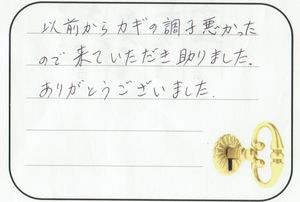 以前からカギの調子悪かった
ので来ていただき助りました.
ありがとうございました.